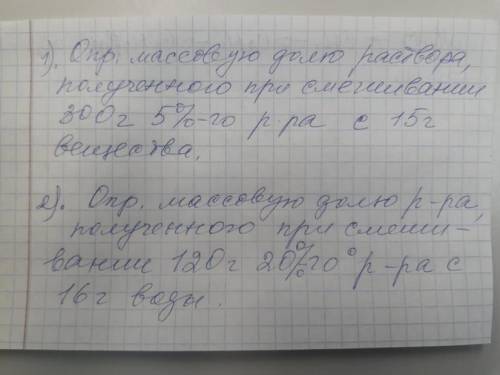 1). Опр. массовую долю раствора,
полученного при смешивании
300г 5%-го р-ра с 15г
вещества.
2). Опр. массовую долю р-ра,
полученного при смеши-
вании 120г 20%-го р-ра с
16г воды.